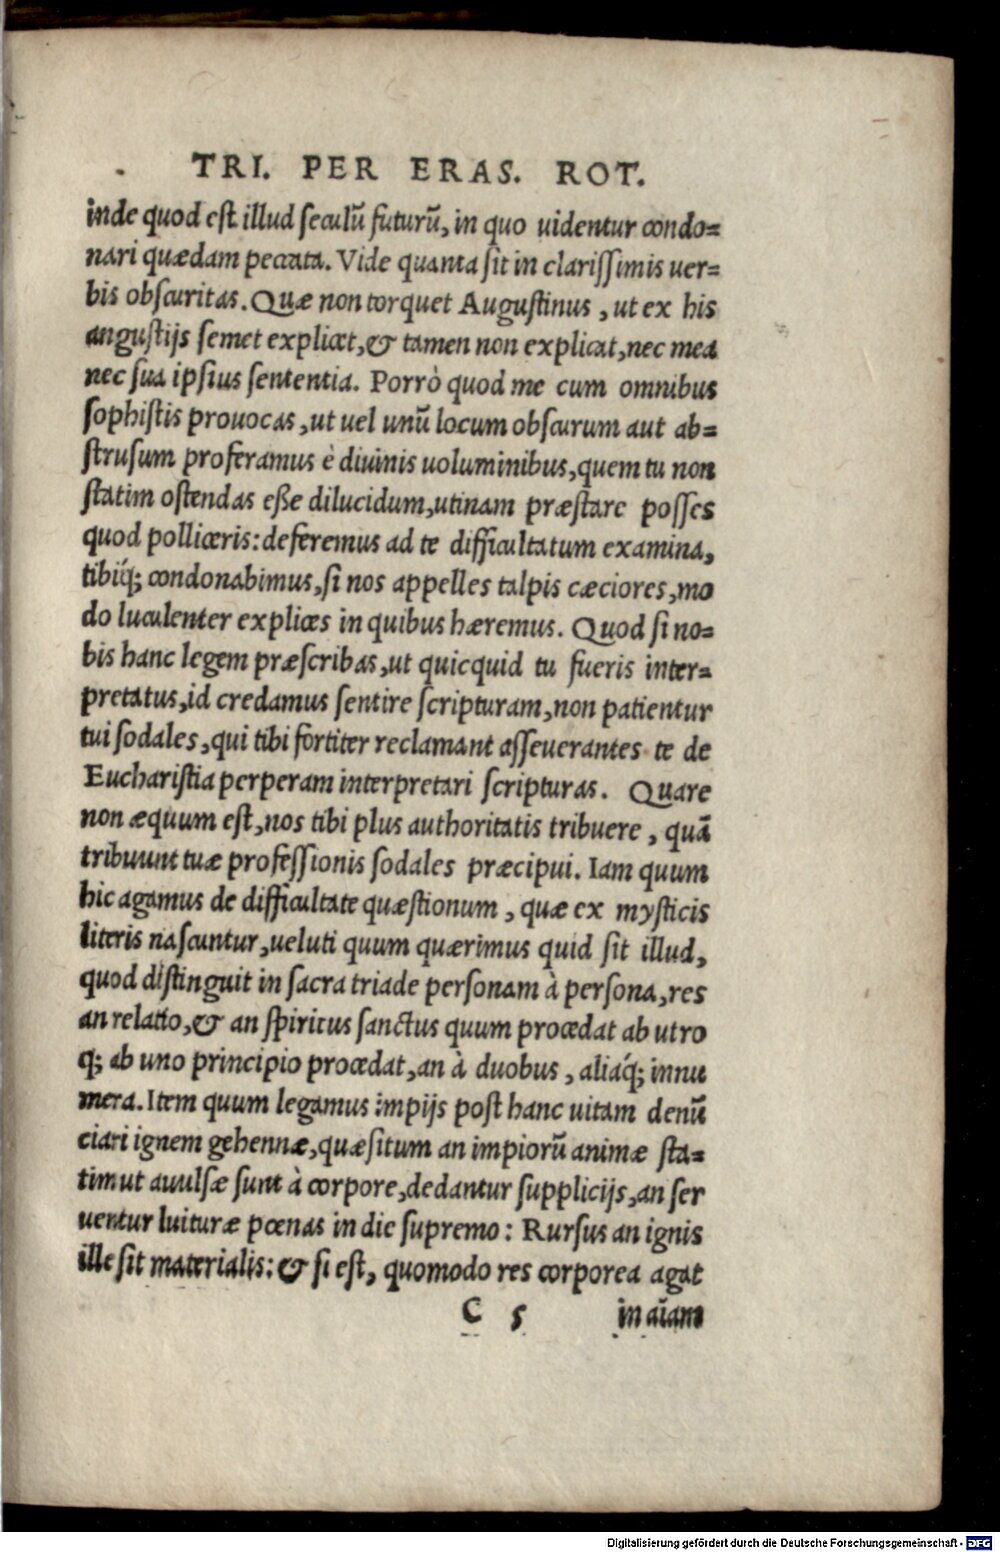 TRI. PER ERAS. ROT.
inde quod est illud seculũ futurũ, in quo uidentur condo=
nari quædam peccata. Vide quanta sit in clarissimis uer=
bis obscuritas. Quæ non torquet Augustinus, ut ex his
angustijs semet explicet, & tamen non explicat, nec mea
nec sua ipsius sententia. Porrò quod me cum omnibus
sophistis prouocas, ut uel unũ locum obscurum aut ab=
strusum proferamus è diuinis uoluminibus, quem tu non
statim ostendas eße dilucidum, utinam præstare posses
quod polliceris: deferemus ad te difficultatum examina,
tibiq́; condonabimus, si nos appelles talpis cæciores, mo
do luculenter explices in quibus hæremus. Quod si no=
bis hanc legem præscribas, ut quicquid tu fueris inter=
pretatus, id credamus sentire scripturam, non patientur
tui sodales, qui tibi fortiter reclamant asseuerantes te de
Eucharistia perperam interpretari scripturas. Quare
non æquum est, nos tibi plus authoritatis tribuere, quã
tribuunt tuæ professionis sodales præcipui. Iam quum
hic agamus de difficultate quæstionum, quæ ex mysticis
literis nascuntur, ueluti quum quærimus quid sit illud,
quod distinguit in sacra triade personam à persona, res
an relatio, & an spiritus sanctus quum procedat ab utro
q; ab uno principio procedat, an à duobus, aliaq́; innu
mera. Item quum legamus impijs post hanc uitam denũ
ciari ignem gehennæ, quæsitum an impiorũ animæ sta=
tim ut auulsæ sunt à corpore, dedantur supplicijs, an ser
uentur luituræ pœnas in die supremo: Rursus an ignis
ille sit materialis: & si est, quomodo res corporea agat
C 5 in aĩam
Digitalisierung gefördert durch die Deutsche Forschungsgemeinschaft - DFG